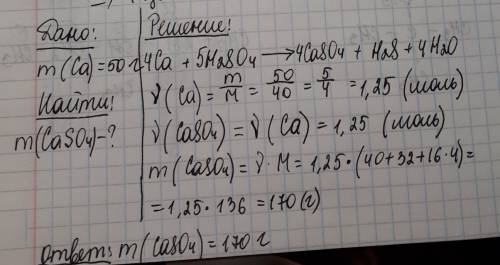 Дано:
m(Ca)=50г
Найти:
m(CaSO₄)-?
Решение:
4Ca + 5H₂SO₄ ⟶ 4CaSO₄ + H₂S + 4H₂O
ν(Ca) = m/M = 50/40 = 5/4 = 1,25 (моль)
ν(CaSO₄) = ν(Ca) = 1,25 (моль)
m(CaSO₄) = ν · M = 1,25 · (40+32+16·4) =
= 1,25 · 136 = 170 (г)
Ответ: m(CaSO₄) = 170 г